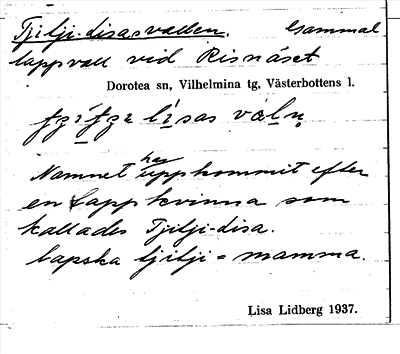 Tjitji-disasvallen. Gammal
lappvall vid Risnäset
Dorotea sn, Vilhelmina tg, Västerbottens l.
Namnet har uppkommit efter
en Lappkvinna som
kallades Tjitji-disa.
lapska tjitji = mamma.
Lisa Lidberg 1937.